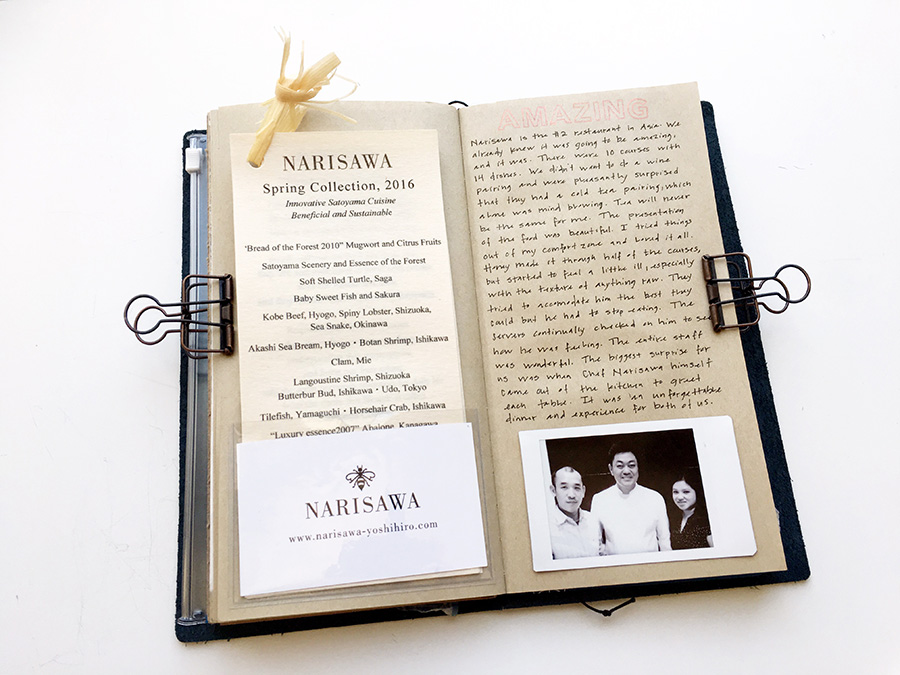 NARISAWA
Spring Collection, 2016
Innovative Satoyama Cuisine
Beneficial and Sustainable
"Bread of the Forest 2010" Mugwort and Citrus Fruits
Satoyama Scenery and Essence of the Forest
Soft Shelled Turtle, Saga
Baby Sweet Fish and Sakura
Kobe Beef, Hyogo, Spiny Lobster, Shizuoka,
Sea Snake, Okinawa
Akashi Sea Bream, Hyogo・Botan Shrimp, Ishikawa
Clam, Mie
Langoustine Shrimp, Shizuoka
Butterbur Bud, Ishikawa・Udo, Tokyo
Tilefish, Yamaguchi・Horsehair Crab, Ishikawa
"Luxury essence2007" Abalone, Kanagawa
NARISAWA
www.narisawa-yoshihiro.com
AMAZING
Narisawa is the #2 restaurant in Asia. We
already knew it was going to be amazing,
and it was. There were 10 courses with
14 dishes. We didn't want to do a wine
pairing and were pleasantly surprised
that they had a cold tea pairing, which
alone was mind blowing. Tea will never
be the same for me. The presentation
of the food was beautiful. I tried things
out of my comfort zone and loved it all.
made it through half of the courses,
but started to feel a little ill, especially
with the texture of anything raw. They
tried to accomodate him the best they
could but he had to stop eating. The
servers continually checked on him to see
how he was feeling. The entire staff
was wonderful. The biggest surprise for
us was when Chef Narisawa himself
came out of the kitchen to greet
each table. It was an unforgettable
dinner and experience for both of us.